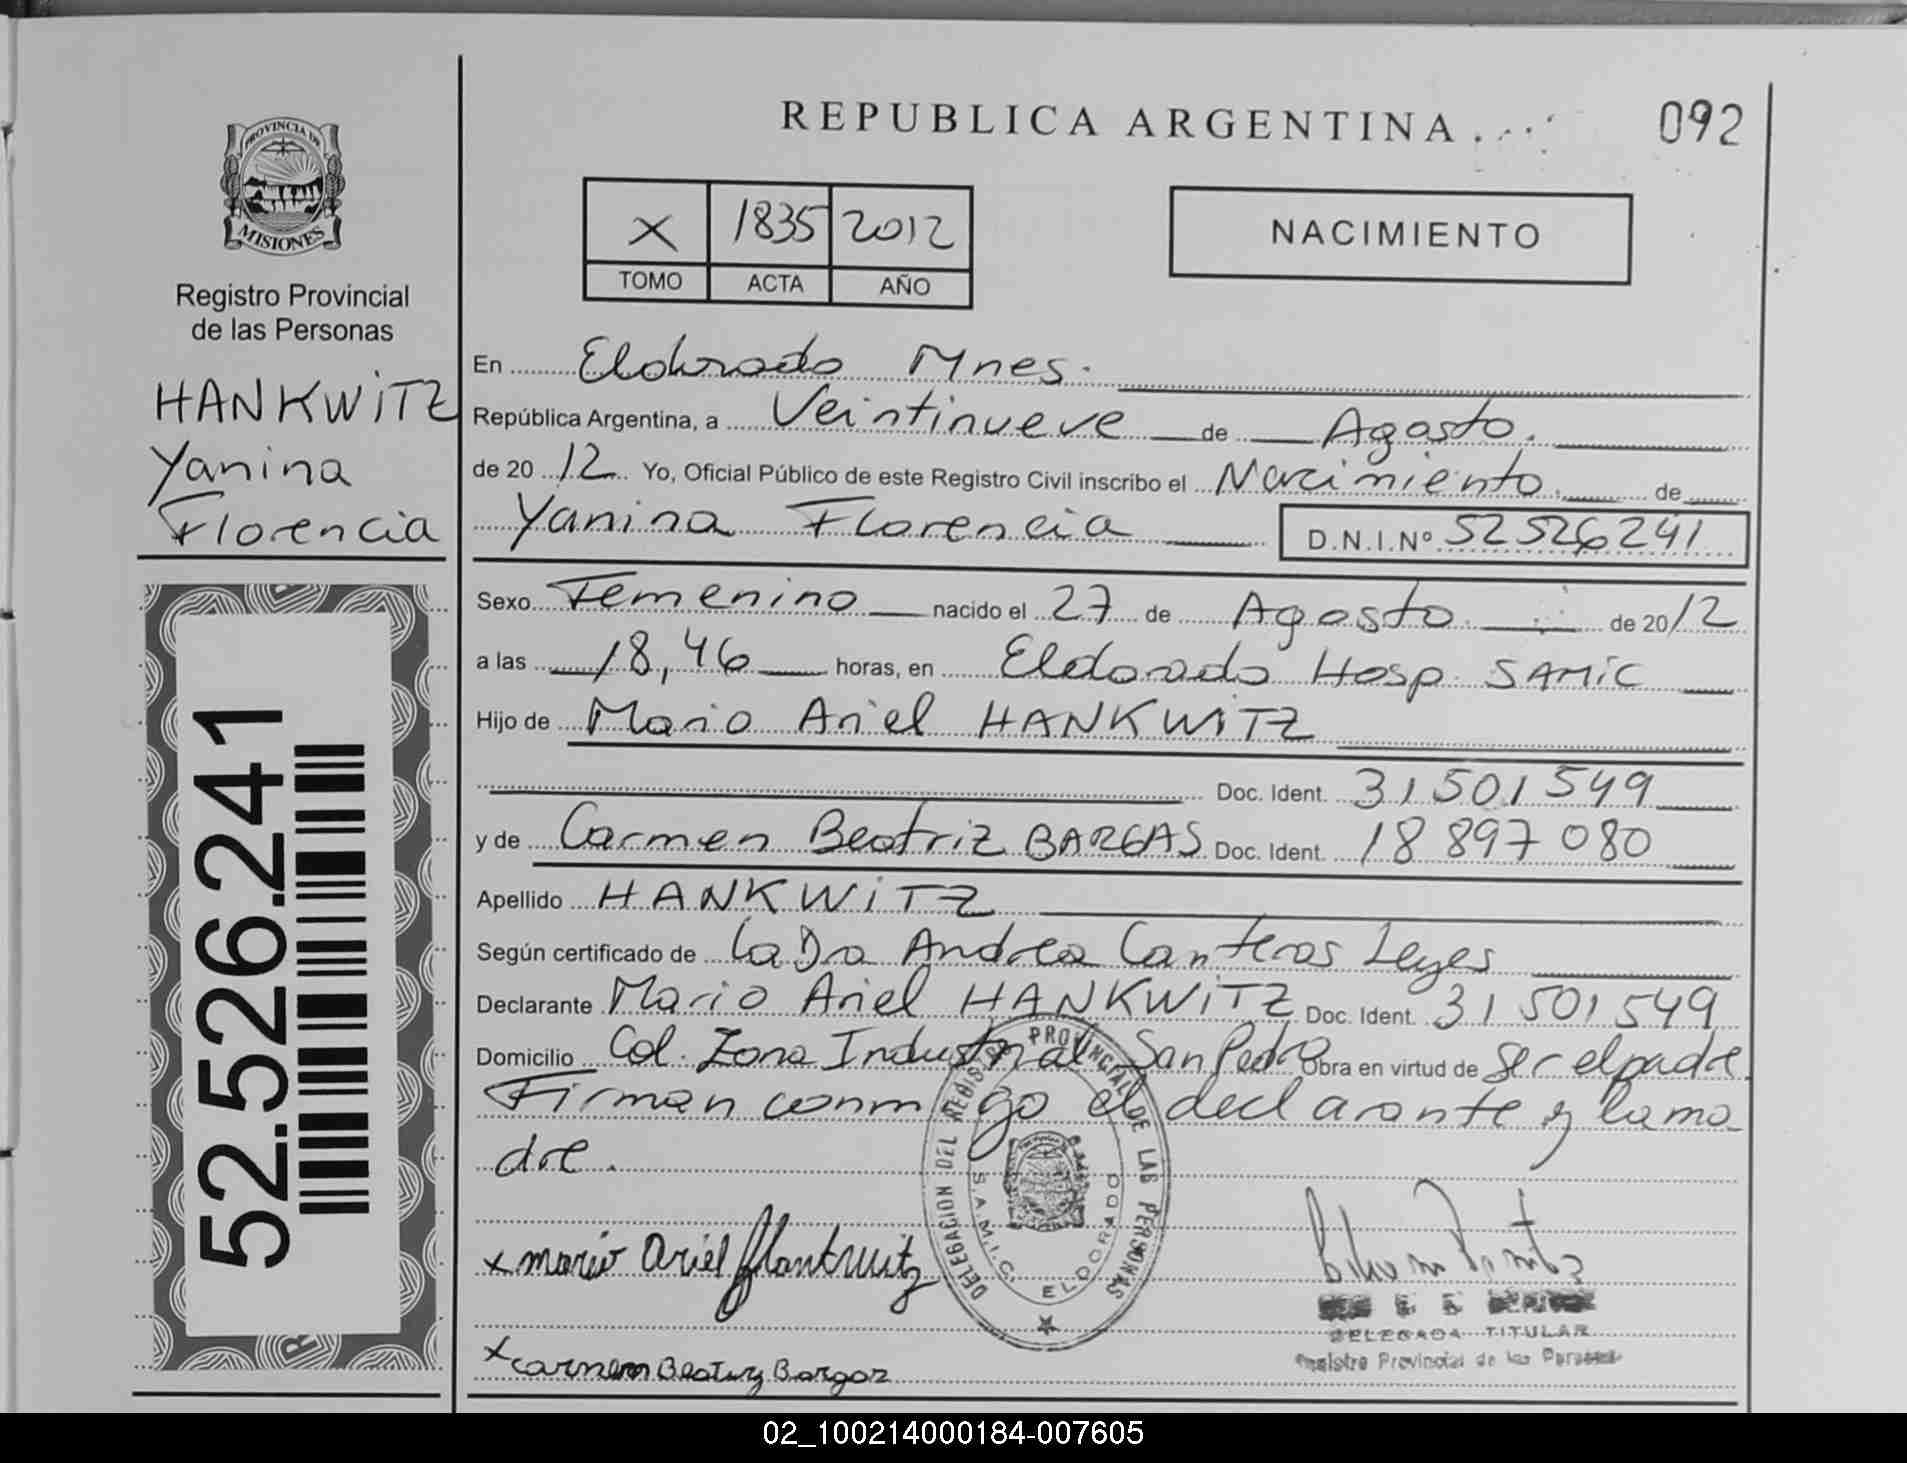 REPUBLICA ARGENTINA
092
PROVINCIA DE
MISIONES
Registro Provincial
de las Personas
HANKWiTZ
Yanina
Florencia
52.526.241
X 1835 2012
TOMO ACTA AÑO
NACIMIENTO
En Eldorado Mnes.
República Argentina, a Veintinueve de Agosto.
de 20 12 Yo, Oficial Público de este Registro Civil inscribo el Nacimiento. de
Yanina Florencia D.N.I.Nº 52526241
Sexo Femenino nacido el 27 de Agosto de 20 12
a las 18,46 horas, en Eldorado Hosp. SAMiC
Hijo de Mario Ariel HANKWiTZ
Doc. Ident. 31501549
y de Carmen Beatriz BARGAS Doc. Ident. 18 897 080
Apellido HANKWiTZ
Según certificado de La Dra Andrea Canteros Leyes
Declarante Mario Ariel HANKWiTZ Doc. Ident. 31 501 549
Domicilio Col. Zona Industrial San Pedro Obra en virtud de Ser el padre.
Firman conmigo el declarante y la ma
dre.
DELEGACION DEL REGISTRO PROVINCIAL DE LAS PERSONAS
S.A.M.I.C. ELDORADO
x mario Ariel Hankwitz
DELEGADA TITULAR
Registro Provincial de las Personas
x carmen Beatriz Bargas
02_100214000184-007605